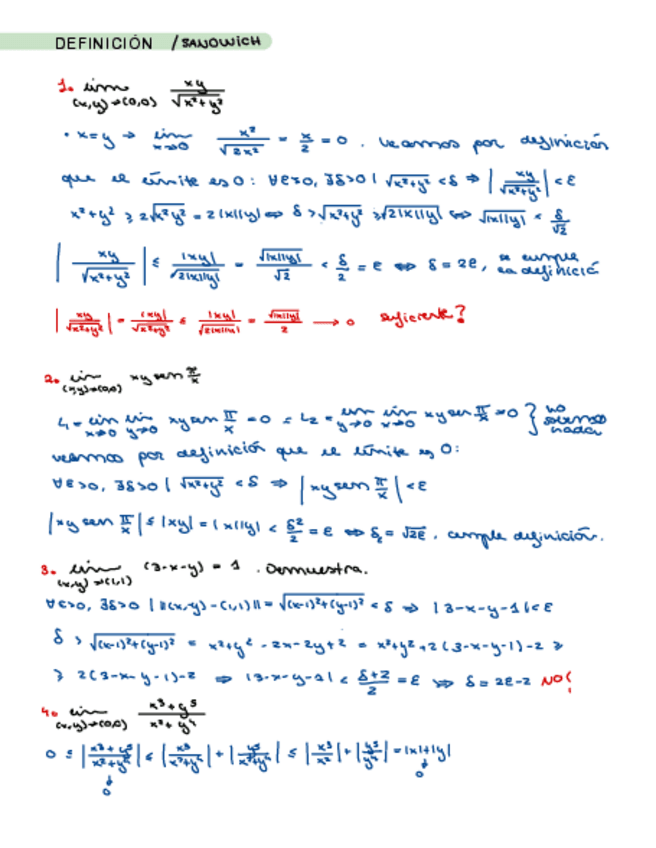 DEFINICIÓN / SANDWICH
1. lim (x,y)→(0,0) xy/√(x²+y²)
• x=y → lim x→0 x²/√(2x²) = x/2 = 0. Veamos por definición
que el límite es 0: ∀ε>0, ∃δ>0 | √(x²+y²) < δ ⇒ |xy/√(x²+y²)| < ε
x²+y² ≥ 2√(x²y²) = 2|x||y| ⇔ δ > √(x²+y²) ≥ √(2|x||y|) ⇔ √(|x||y|) < δ/√2
|xy/√(x²+y²)| ≤ |xy|/√(2|x||y|) = √(|x||y|)/√2 < δ/2 = ε ⇔ δ = 2ε, se cumple la definició
|xy/√(x²+y²)| = |xy|/√(x²+y²) ≤ |xy|/√(2|x||y|) = √(|x||y|)/2 → 0 suficiente?
2. lim (x,y)→(0,0) xy sen π/x
L₁ = lim x→0 lim y→0 xy sen π/x = 0 = L₂ = lim y→0 lim x→0 xy sen π/x = 0 } no sabemos nada
veamos por definición que el límite es 0:
∀ε>0, ∃δ>0 | √(x²+y²) < δ ⇒ |xy sen π/x| < ε
|xy sen π/x| ≤ |xy| = |x||y| < δ²/2 = ε ⇔ δ = √2ε, cumple definición.
3. lim (x,y)→(1,1) (3-x-y) = 1. Demuestra.
∀ε>0, ∃δ>0 | ||(x,y)-(1,1)|| = √((x-1)²+(y-1)²) < δ ⇒ |3-x-y-1| < ε
δ > √((x-1)²+(y-1)²) = x²+y²-2x-2y+2 = x²+y²+2(3-x-y-1)-2 ≥
≥ 2(3-x-y-1)-2 ⇒ |3-x-y-1| < (δ+2)/2 = ε ⇒ δ = 2ε-2 NO!
4. lim (x,y)→(0,0) (x³+y⁵)/(x²+y⁴)
0 ≤ |(x³+y⁵)/(x²+y⁴)| ≤ |x³/(x²+y⁴)| + |y⁵/(x²+y⁴)| ≤ |x³/x²| + |y⁵/y⁴| = |x|+|y|
↓ ↓
0 0